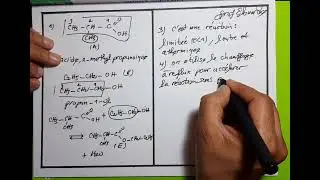 2)
CH3 - CH - C
O
OH
CH3
(A)
acide, 2-methyl propanoique
C2H5 - CH2 - OH (B)
propan-1-ol
CH3 - CH - C
OH +
CH3
⇌ CH3 - CH - C
CH3
(E)
+ H2O
3) c'est une réaction:
limitée, lente et
athermique
4) on utilise le chauffage
à reflux pour accélérer
la réaction sans